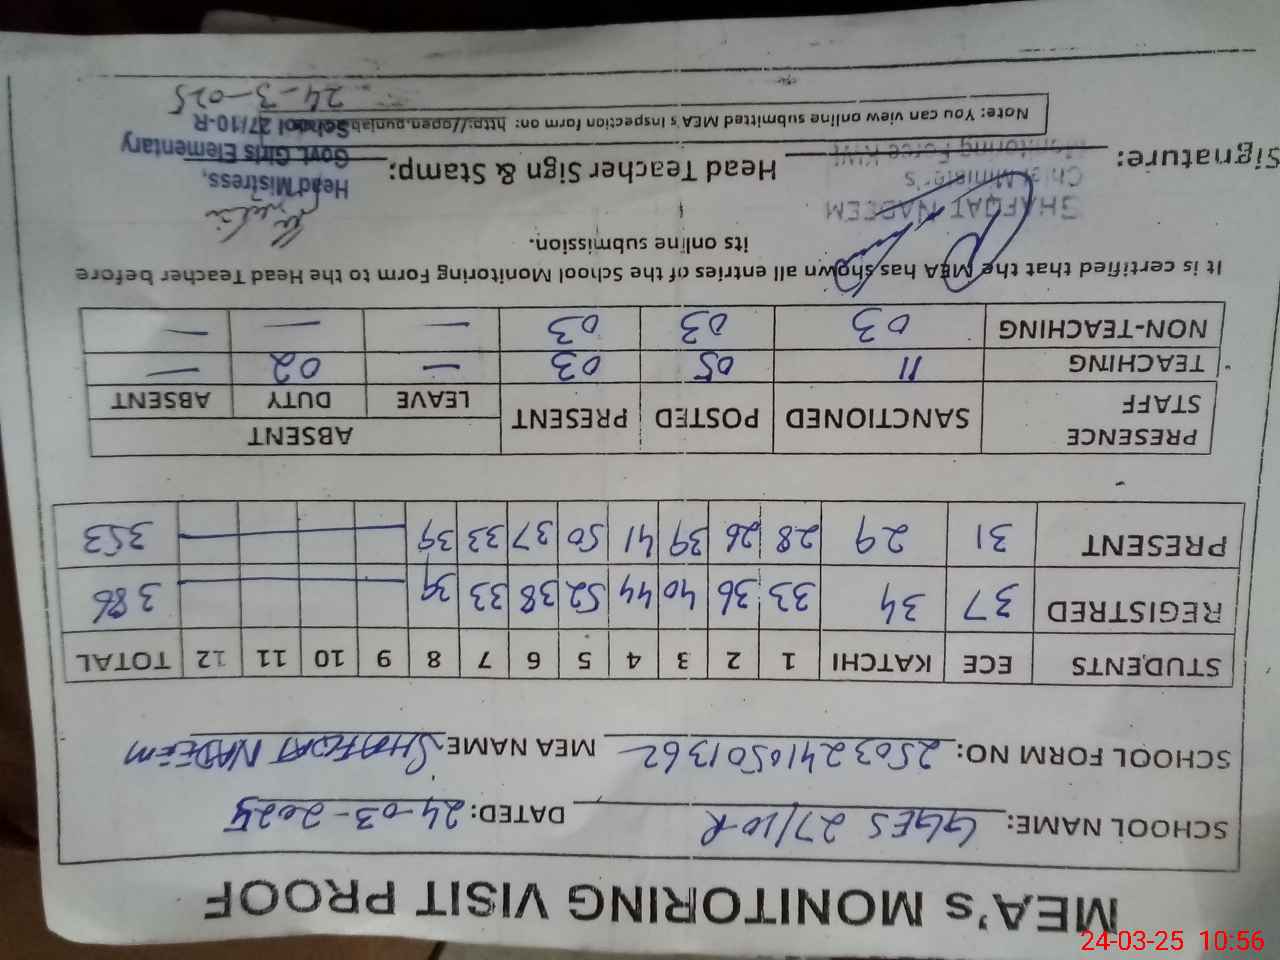 MEA's MONITORING VISIT PROOF
SCHOOL NAME: GGES 27/10-R DATED: 24-03-2025
SCHOOL FORM NO: 25032410501362 MEA NAME SHAFQAT NADEEM
STUDENTS ECE KATCHI 1 2 3 4 5 6 7 8 9 10 11 12 TOTAL
REGISTRED 37 34 33 36 40 44 52 38 33 39 386
PRESENT 31 29 28 26 39 41 50 37 33 39 353
PRESENCE STAFF SANCTIONED POSTED PRESENT ABSENT
LEAVE DUTY ABSENT
TEACHING 11 05 03 — 02 —
NON-TEACHING 03 03 03 — — —
It is certified that the MEA has shown all entries of the School Monitoring Form to the Head Teacher before
its online submission.
SHAFQAT NADEEM
Chief Minister's
Monitoring Force KWL
Signature: Head Teacher Sign & Stamp:
Head Mistress,
Govt. Girls Elementary
School 27/10-R
Note: You can view online submitted MEA's Inspection form on: http://open.punjab
24-3-025
24-03-25 10:56